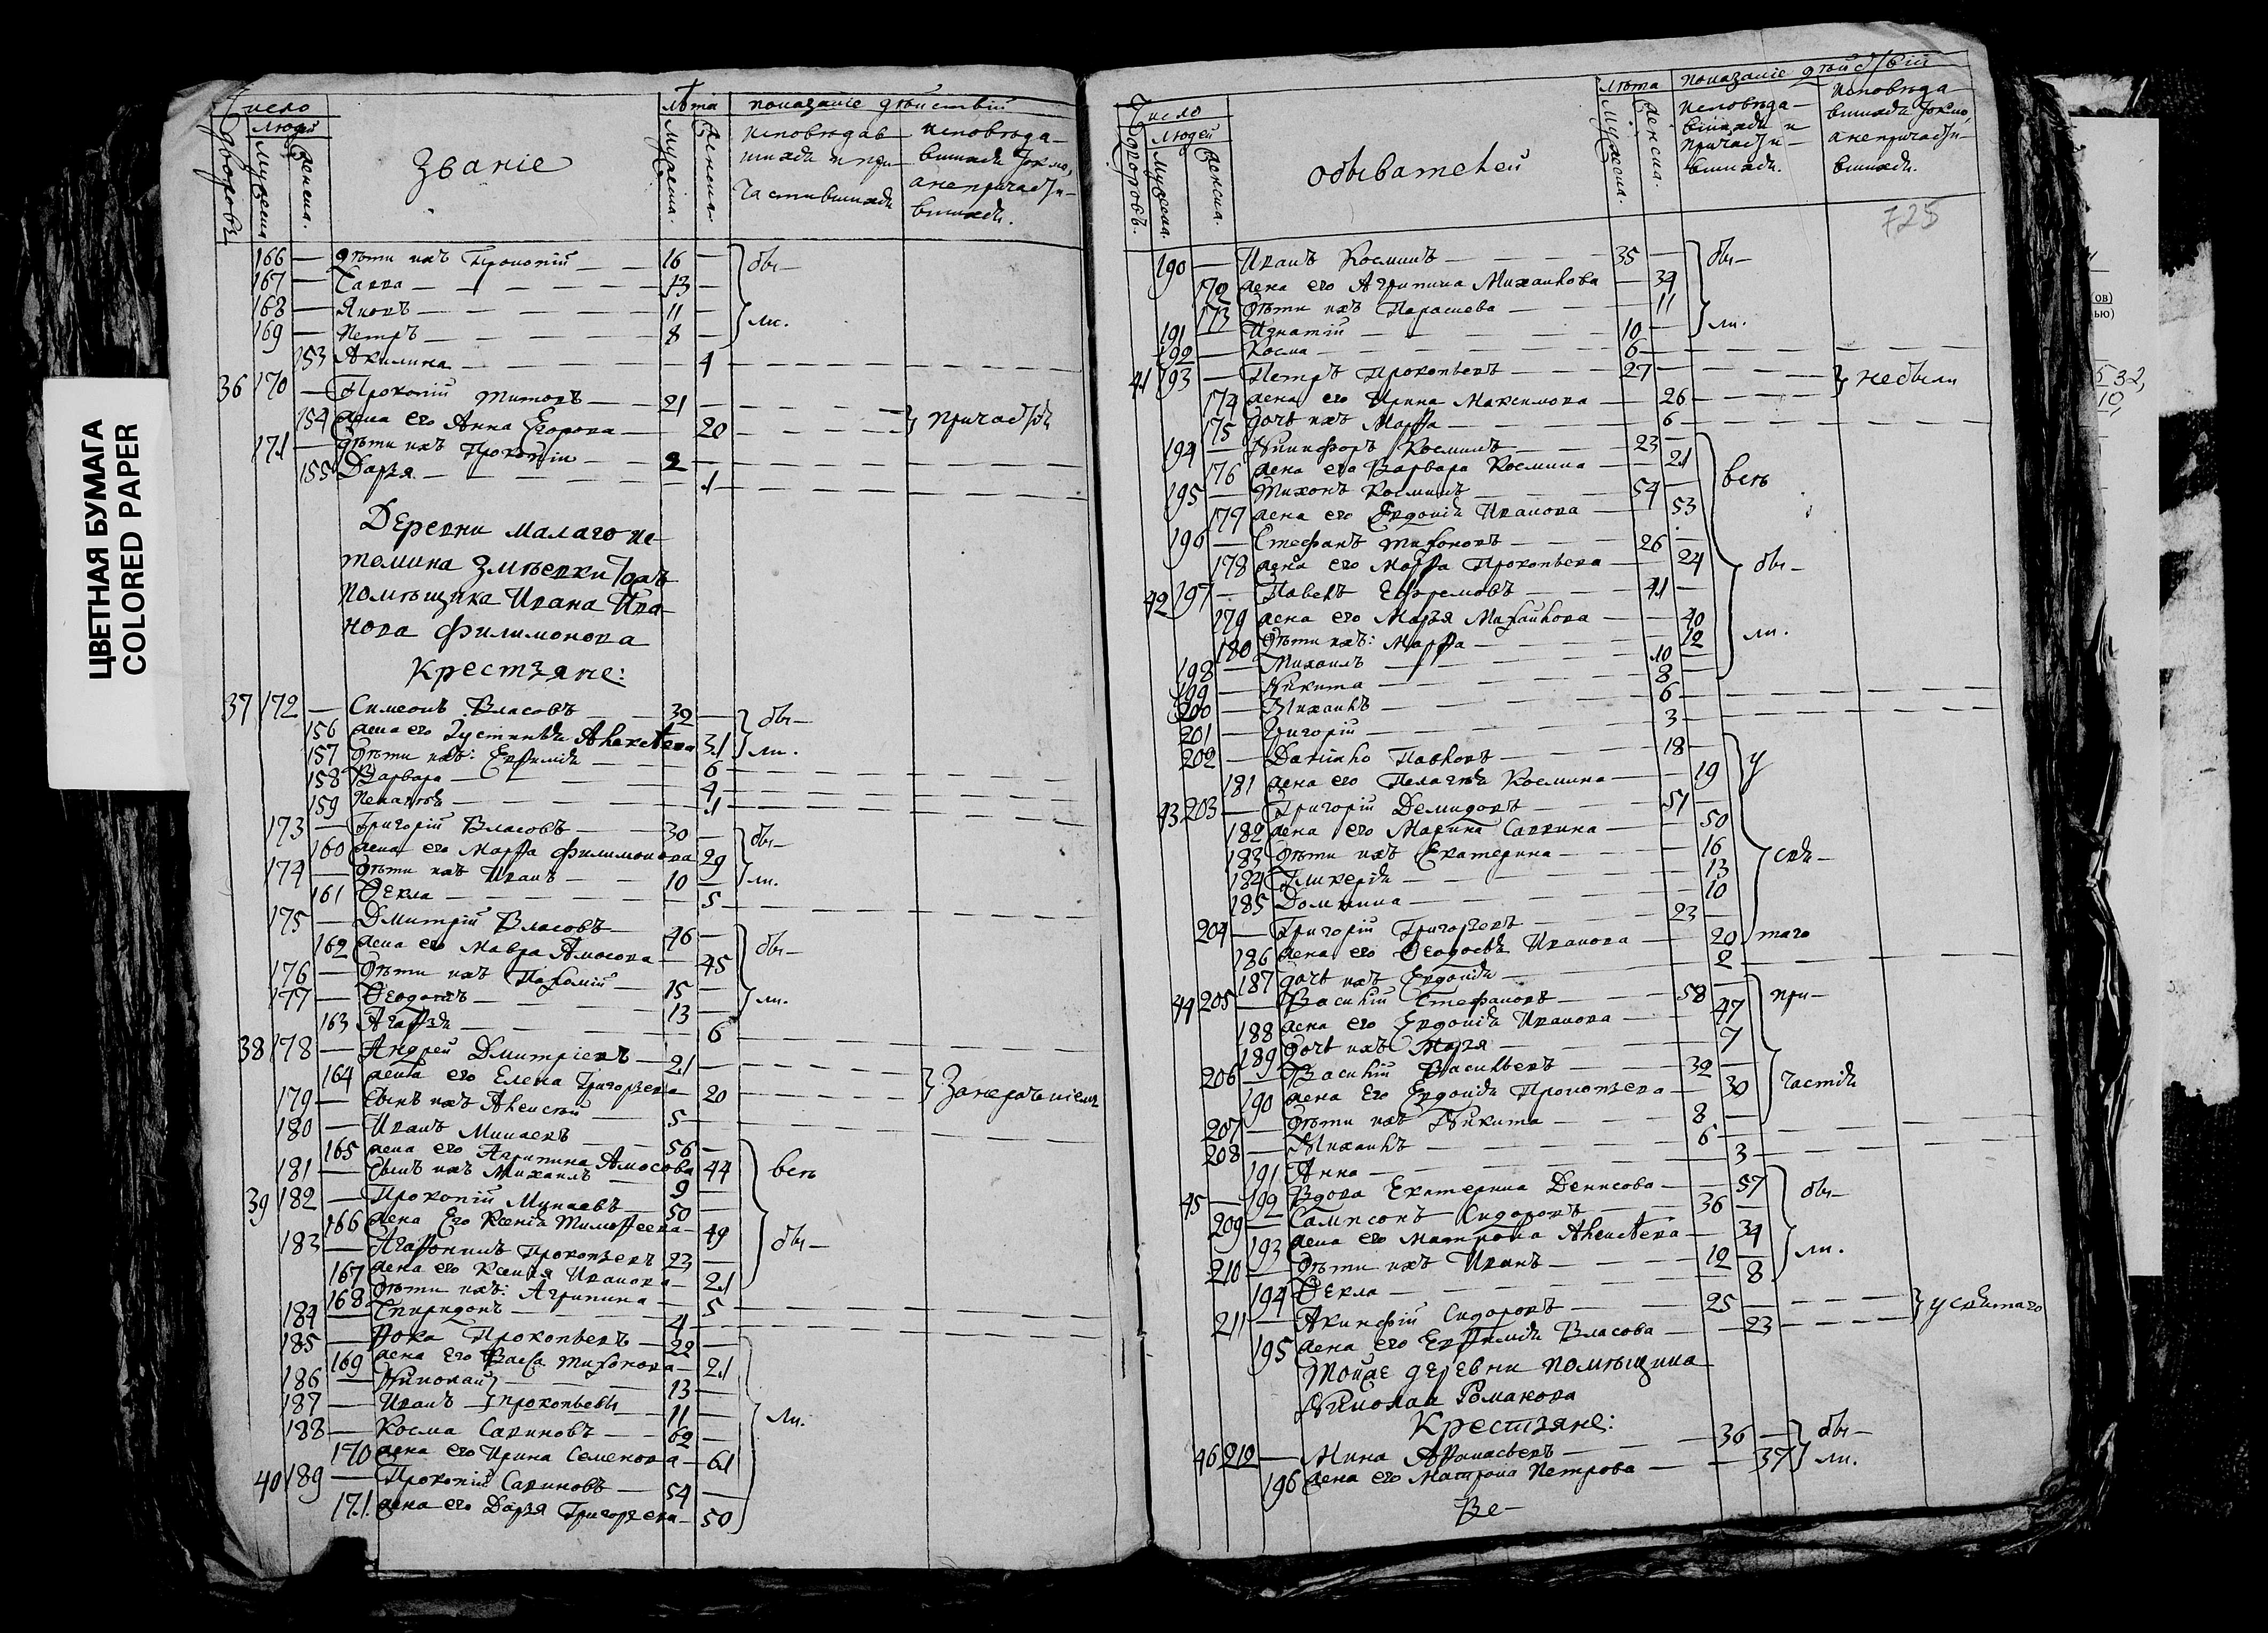 ЦВЕТНАЯ БУМАГА
COLORED PAPER
Число
Людей
дворовъ
Мужеска
женска.
Званіе
лѣта
Мужеска.
женска.
показаніе дѣйствій
исповѣдав
шихся и при
частившихся
исповѣда
вшихся токмо,
а непричасти
вшихся.
166 — дѣти ихъ Прокопій — 16 — бы
167 — Савва — 13 —
168 — Яковъ — 11 —
169 — Петръ — 8 — ли.
153 Акилина — 4
36 170 — Прокопій Титовъ — 21
154 жена его Анна Егорова — 20
171 — дѣти ихъ Прокопій — 2
155 Дарья — 1
Деревни Малаго Ис
томина Змѣевки тожъ
помѣщика Ивана Ива
нова Филимонова
Крестьяне:
37 172 — Симеонъ Власовъ — 32 — бы
156 жена его Іустинія Алексѣева 31 ли.
157 дѣти ихъ: Евфимія — 6
158 Варвара — 4
159 Пелагѣя — 1
173 — Григорій Власовъ — 30 — бы
160 жена его Марфа Филимонова 29
174 — дѣти ихъ Иванъ — 10 — ли.
161 Ѳекла — 5
175 — Дмитрій Власовъ — 46 — бы
162 жена его Мавра Амосова — 45
176 — дѣти ихъ Пахомій — 15 —
177 — Ѳеодотъ — 13 — ли.
163 Агафія — 6
38 178 — Андрей Дмитріевъ — 21
164 жена его Елена Григорьева — 20
179 — сынъ ихъ Алексѣй — 5
180 — Иванъ Минаевъ — 56 —
165 жена его Агрипина Амосова 44 весь
181 — сынъ ихъ Михаилъ — 9 —
39 182 — Прокопій Мунаевъ — 50 —
166 жена его Ксенія Тимофеева — 49
183 — Агафонникъ Прокопьевъ 23 — бы
167 жена его Ксенія Иванова — 21
168 дѣти ихъ: Агрипина — 5
184 — Спиридонъ — 4
185 — Фока Прокопьевъ — 22 —
169 жена его Васса Тихонова — 21
186 — Николай — 13 —
187 — Иванъ Прокопьевы 11 —
188 — Косма Савиновъ — 62 — ли.
170 жена его Ирина Семенова — 61
40 189 — Прокопій Савиновъ — 54 —
171 жена его Дарья Григорьева — 50
Число
Людей
дворовъ.
Мужска.
женска.
обывателей
лѣта
Мужска.
женска.
показаніе дѣйствій
исповѣда
вшихся и
причасти
вшихся.
исповѣда
вшихся токмо,
а непричасти
вшихся.
725
190 — Иванъ Косминъ — 35 — бы
172 жена его Агрипина Михайлова — 34
173 дѣти ихъ Параскева — 11
191 — Игнатій — 10 — ли.
192 — Косма — 6
41 193 — Петръ Прокопьевъ — 27 — небыли
174 жена его Ирина Максимова — 26
175 дочь ихъ Марфа — 6
194 — Никифоръ Косминъ — 23 —
176 жена его Варвара Космина — 21 весь
195 — Тихонъ Косминъ — 54 —
177 жена его Евдокія Иванова — 53
196 — Стефанъ Тихоновъ — 26 —
178 жена его Марфа Прокопьева — 24 бы
42 197 — Павелъ Ефремовъ — 41 —
179 жена его Марья Михайлова — 40
180 дѣти ихъ: Марфа — 12 ли.
198 — Михаилъ — 10 —
199 — Никита — 8 —
200 — Михаилъ — 6
201 — Григорій — 3
202 — Данійло Павловъ — 18 — у
181 жена его Пелагѣя Космина — 19
43 203 — Григорій Демидовъ — 51 —
182 жена его Марина Саввина — 50
183 дѣти ихъ Екатерина — 16 свя
184 Гликерія — 13
185 Домнина — 10
204 — Григорій Григорьевъ — 23 —
186 жена его Ѳеодосія Иванова — 20 таго
187 дочь ихъ Евдокія — 2
44 205 — Василій Стефановъ — 58 — при
188 жена его Евдокія Иванова — 47
189 дочь ихъ Марья — 7
206 — Василій Васильевъ — 32 —
190 жена его Евдокія Прокопьева — 30 частія
207 — дѣти ихъ Никита — 8 —
208 — Михаилъ — 6
191 Анна — 3
45 — 192 Вдова Екатерина Денисова — 57 бы
209 — Сампсонъ Сидоровъ — 36 —
193 жена его Матрона Алексѣева — 34
210 — дѣти ихъ Иванъ — 12 — ли.
194 Ѳекла — 8
211 — Акинфій Сидоровъ — 25 — у святаго
195 жена его Евфимія Власова — 23
Тойже деревни помѣщика
Николая Романова
Крестьяне:
46 212 — Мина Афанасьевъ — 36 — бы
196 жена его Матрона Петрова — 37 ли.
Ве